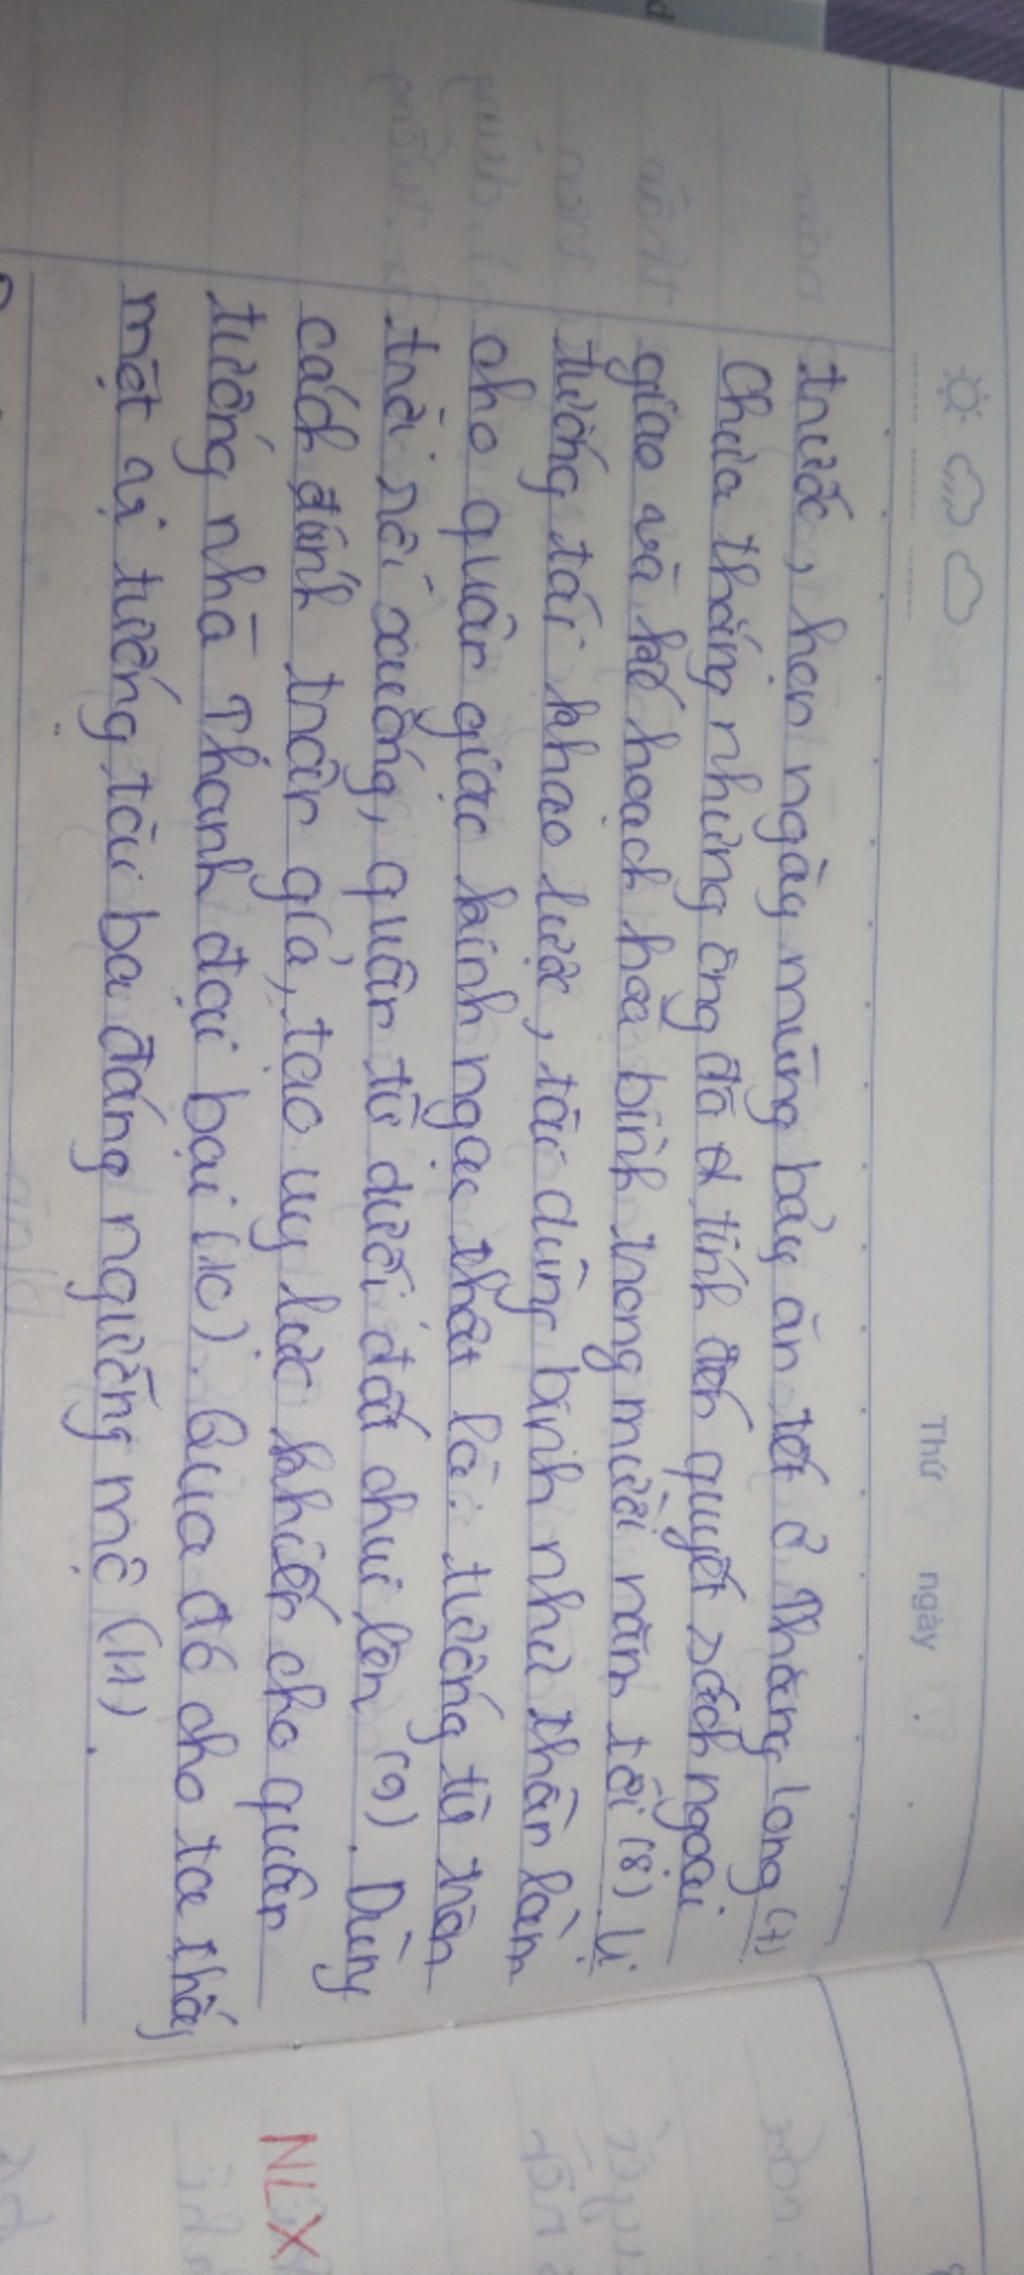 Thứ ngày
trước, hẹn ngày mùng bảy ăn tết ở Thăng Long (7)
Chưa thắng nhưng ông đã tính đến quyết sách ngoại
giao và kế hoạch hoà bình trong mười năm tới (8). Vị
tướng tài thao lược, tài dùng binh như thần làm
cho quân giặc kinh ngạc thốt lên: tướng từ trên
trời rơi xuống, quân từ dưới đất chui lên (9). Dùng
cách đánh trận giả, tạo uy lực khiến cho quân
tướng nhà Thanh đại bại (10). Qua đó cho ta thấy
một vị tướng tài ba đáng ngưỡng mộ (11).
NLX